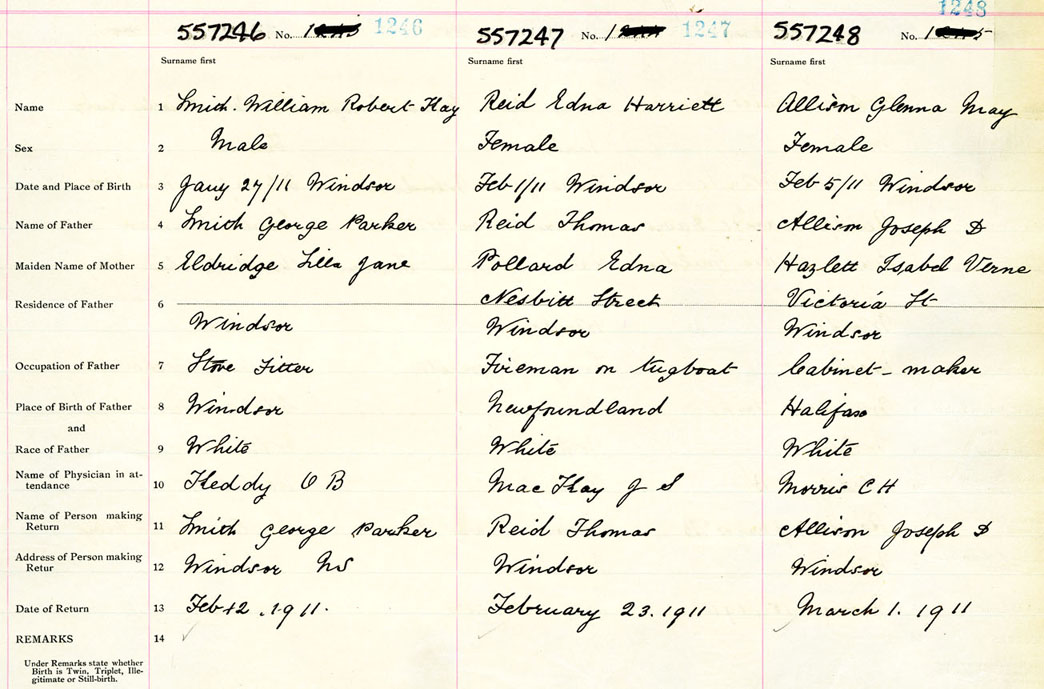 1248
557246 No. 1246
557247 No. 1247
557248 No.
Surname first Surname first Surname first
Name 1 Smith. William Robert Kay Reid Edna Harriett Allison Glenna May
Sex 2 Male Female Female
Date and Place of Birth 3 Jany 27/11 Windsor Feb 1/11 Windsor Feb 5/11 Windsor
Name of Father 4 Smith George Parker Reid Thomas Allison Joseph D
Maiden Name of Mother 5 Eldridge Lilla Jane Pollard Edna Hazlett Isabel Verne
Residence of Father 6 Nesbitt Street Victoria St
Windsor Windsor Windsor
Occupation of Father 7 Stove Fitter Fireman on tugboat Cabinet-maker
Place of Birth of Father 8 Windsor Newfoundland Halifax
and
Race of Father 9 White White White
Name of Physician in at-
tendance 10 Keddy O B MacKay J S Morris C H
Name of Person making
Return 11 Smith George Parker Reid Thomas Allison Joseph D
Address of Person making
Retur 12 Windsor NS Windsor Windsor
Date of Return 13 Feb 12. 1911. February 23. 1911 March 1. 1911
REMARKS 14
Under Remarks state whether
Birth is Twin, Triplet, Ille-
gitimate or Still-birth.